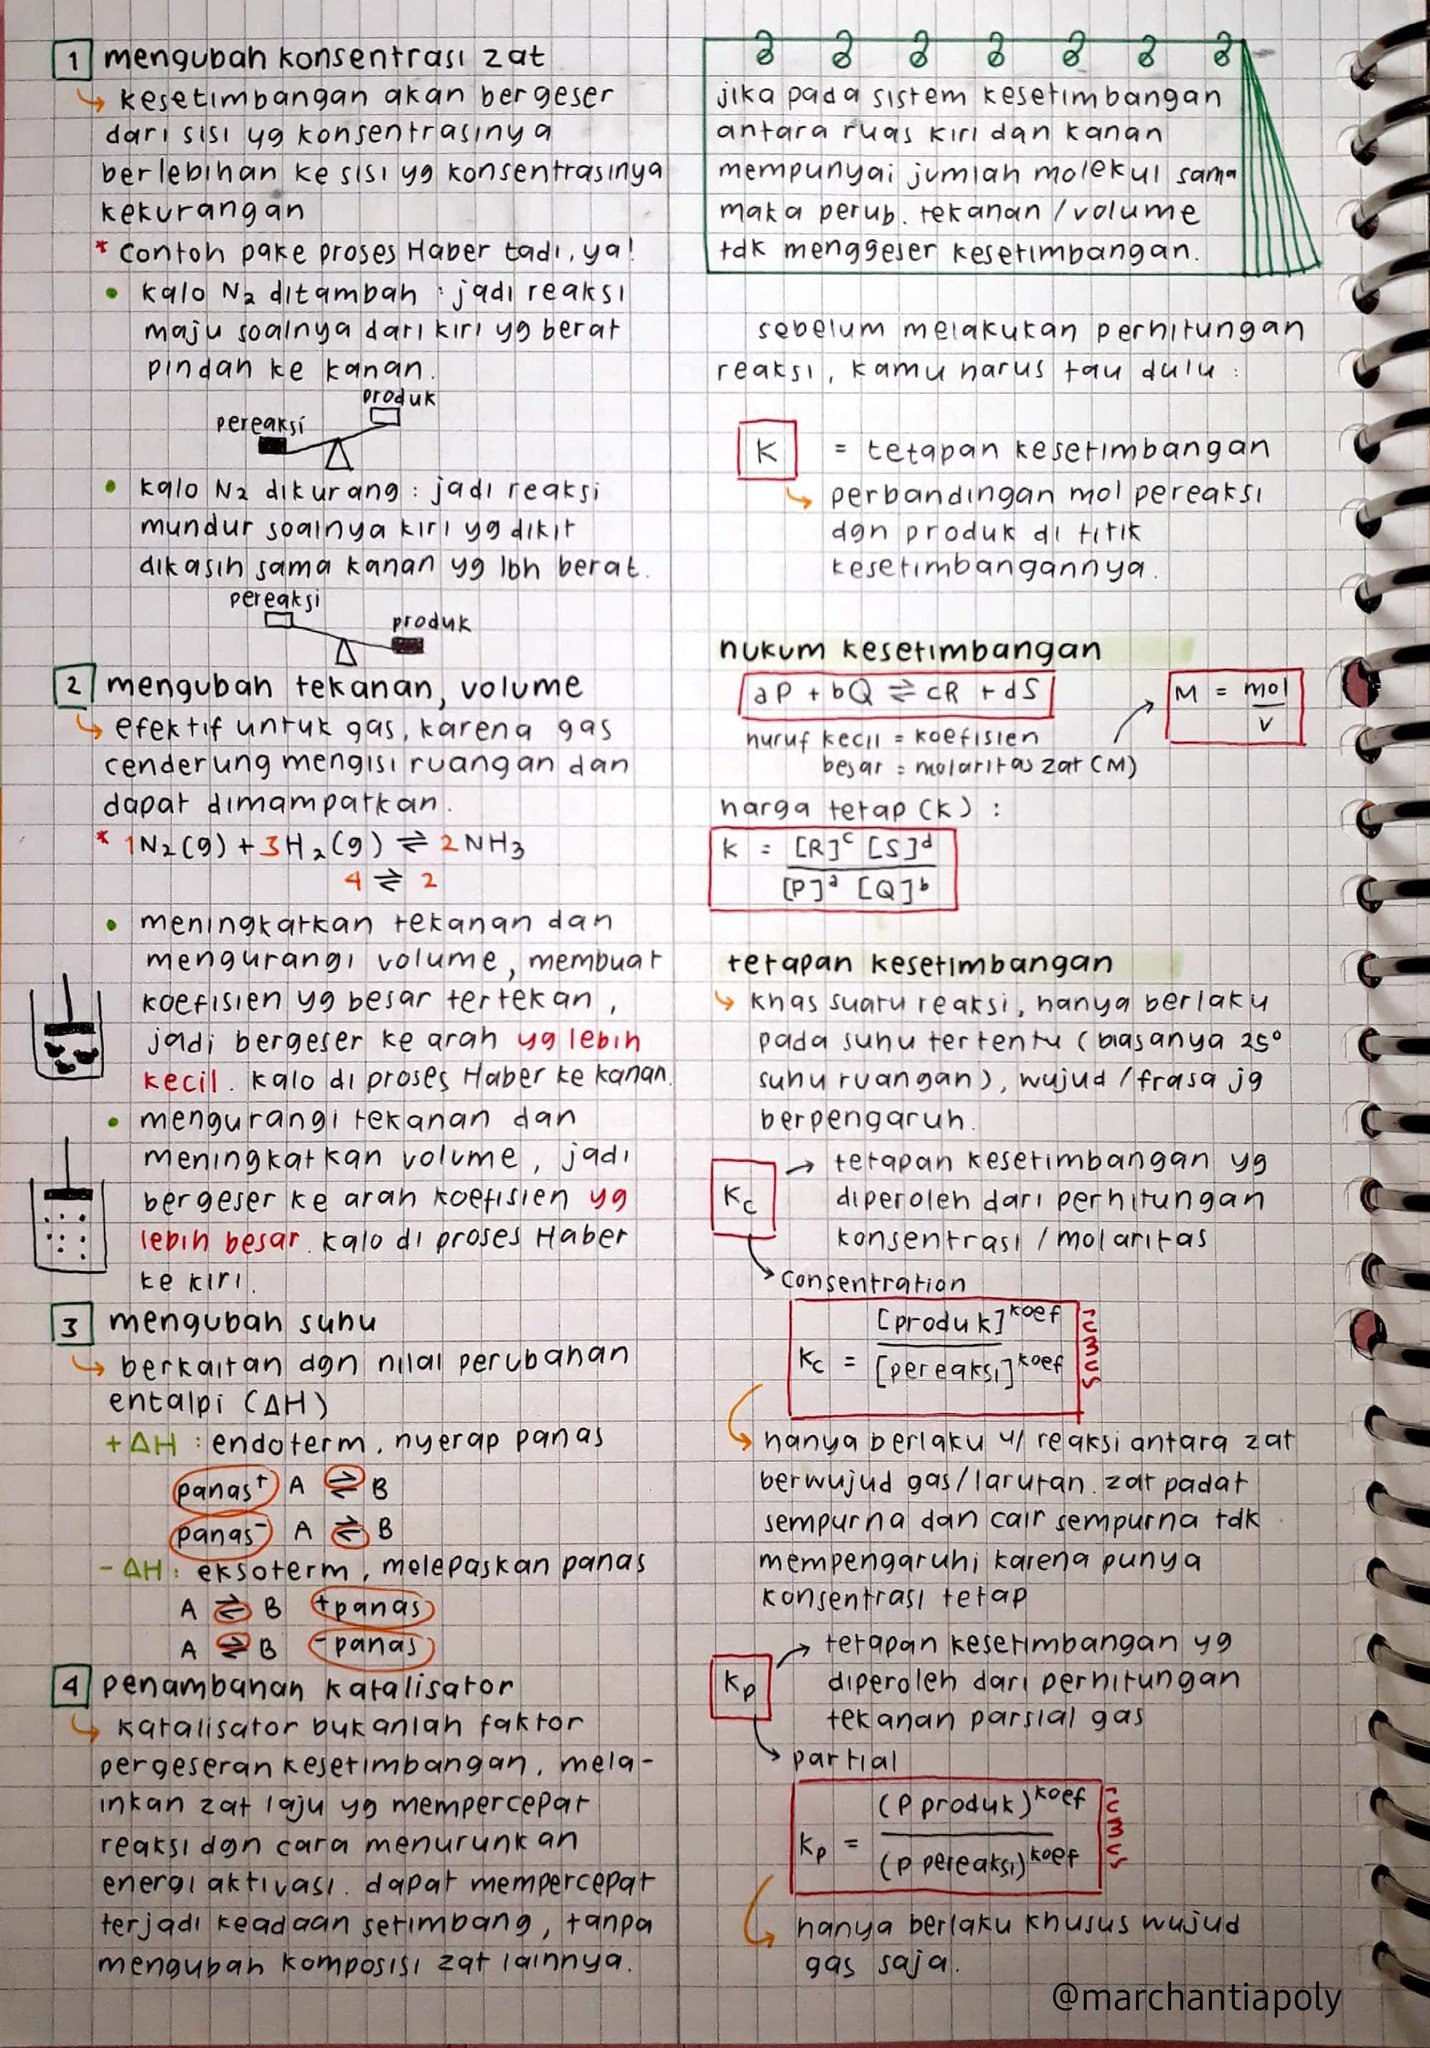 1 mengubah konsentrasi zat
↳ kesetimbangan akan bergeser
dari sisi yg konsentrasinya
berlebihan ke sisi yg konsentrasinya
kekurangan
* Contoh pake proses Haber tadi, ya!
• kalo N₂ ditambah : jadi reaksi
maju soalnya dari kiri yg berat
pindah ke kanan.
produk
pereaksi
• kalo N₂ dikurang : jadi reaksi
mundur soalnya kiri yg dikit
dikasih sama kanan yg lbh berat.
pereaksi
produk
2 mengubah tekanan, volume
↳ efektif untuk gas, karena gas
cenderung mengisi ruangan dan
dapat dimampatkan.
* 1N₂(g) + 3H₂(g) ⇌ 2NH₃
4 ⇌ 2
• meningkatkan tekanan dan
mengurangi volume, membuat
koefisien yg besar tertekan,
jadi bergeser ke arah yg lebih
kecil. kalo di proses Haber ke kanan.
• mengurangi tekanan dan
meningkatkan volume, jadi
bergeser ke arah koefisien yg
lebih besar. kalo di proses Haber
ke kiri.
3 mengubah suhu
↳ berkaitan dgn nilai perubahan
entalpi (ΔH)
+ΔH : endoterm, nyerap panas
panas⁺ A ⇌ B
panas⁻ A ⇌ B
-ΔH : eksoterm, melepaskan panas
A ⇌ B +panas
A ⇌ B -panas
4 penambahan katalisator
↳ katalisator bukanlah faktor
pergeseran kesetimbangan, mela-
inkan zat laju yg mempercepat
reaksi dgn cara menurunkan
energi aktivasi. dapat mempercepat
terjadi keadaan setimbang, tanpa
mengubah komposisi zat lainnya.
jika pada sistem kesetimbangan
antara ruas kiri dan kanan
mempunyai jumlah molekul sama
maka perub. tekanan/volume
tdk menggeser kesetimbangan.
sebelum melakukan perhitungan
reaksi, kamu harus tau dulu :
K = tetapan kesetimbangan
↳ perbandingan mol pereaksi
dgn produk di titik
kesetimbangannya.
hukum kesetimbangan
aP + bQ ⇌ cR + dS
M = mol / v
huruf kecil = koefisien
besar = molaritas zat (M)
harga tetap (K) :
K = [R]ᶜ [S]ᵈ / [P]ᵃ [Q]ᵇ
tetapan kesetimbangan
↳ khas suatu reaksi, hanya berlaku
pada suhu tertentu (biasanya 25°
suhu ruangan), wujud/frasa jg
berpengaruh.
Kc → tetapan kesetimbangan yg
diperoleh dari perhitungan
konsentrasi/molaritas
↳ consentration
Kc = [produk]ᵏᵒᵉᶠ / [pereaksi]ᵏᵒᵉᶠ
rumus
↳ hanya berlaku u/ reaksi antara zat
berwujud gas/larutan. zat padat
sempurna dan cair sempurna tdk
mempengaruhi karena punya
konsentrasi tetap
Kp → tetapan kesetimbangan yg
diperoleh dari perhitungan
tekanan parsial gas
↳ partial
Kp = (P produk)ᵏᵒᵉᶠ / (P pereaksi)ᵏᵒᵉᶠ
rumus
↳ hanya berlaku khusus wujud
gas saja.
@marchantiapoly